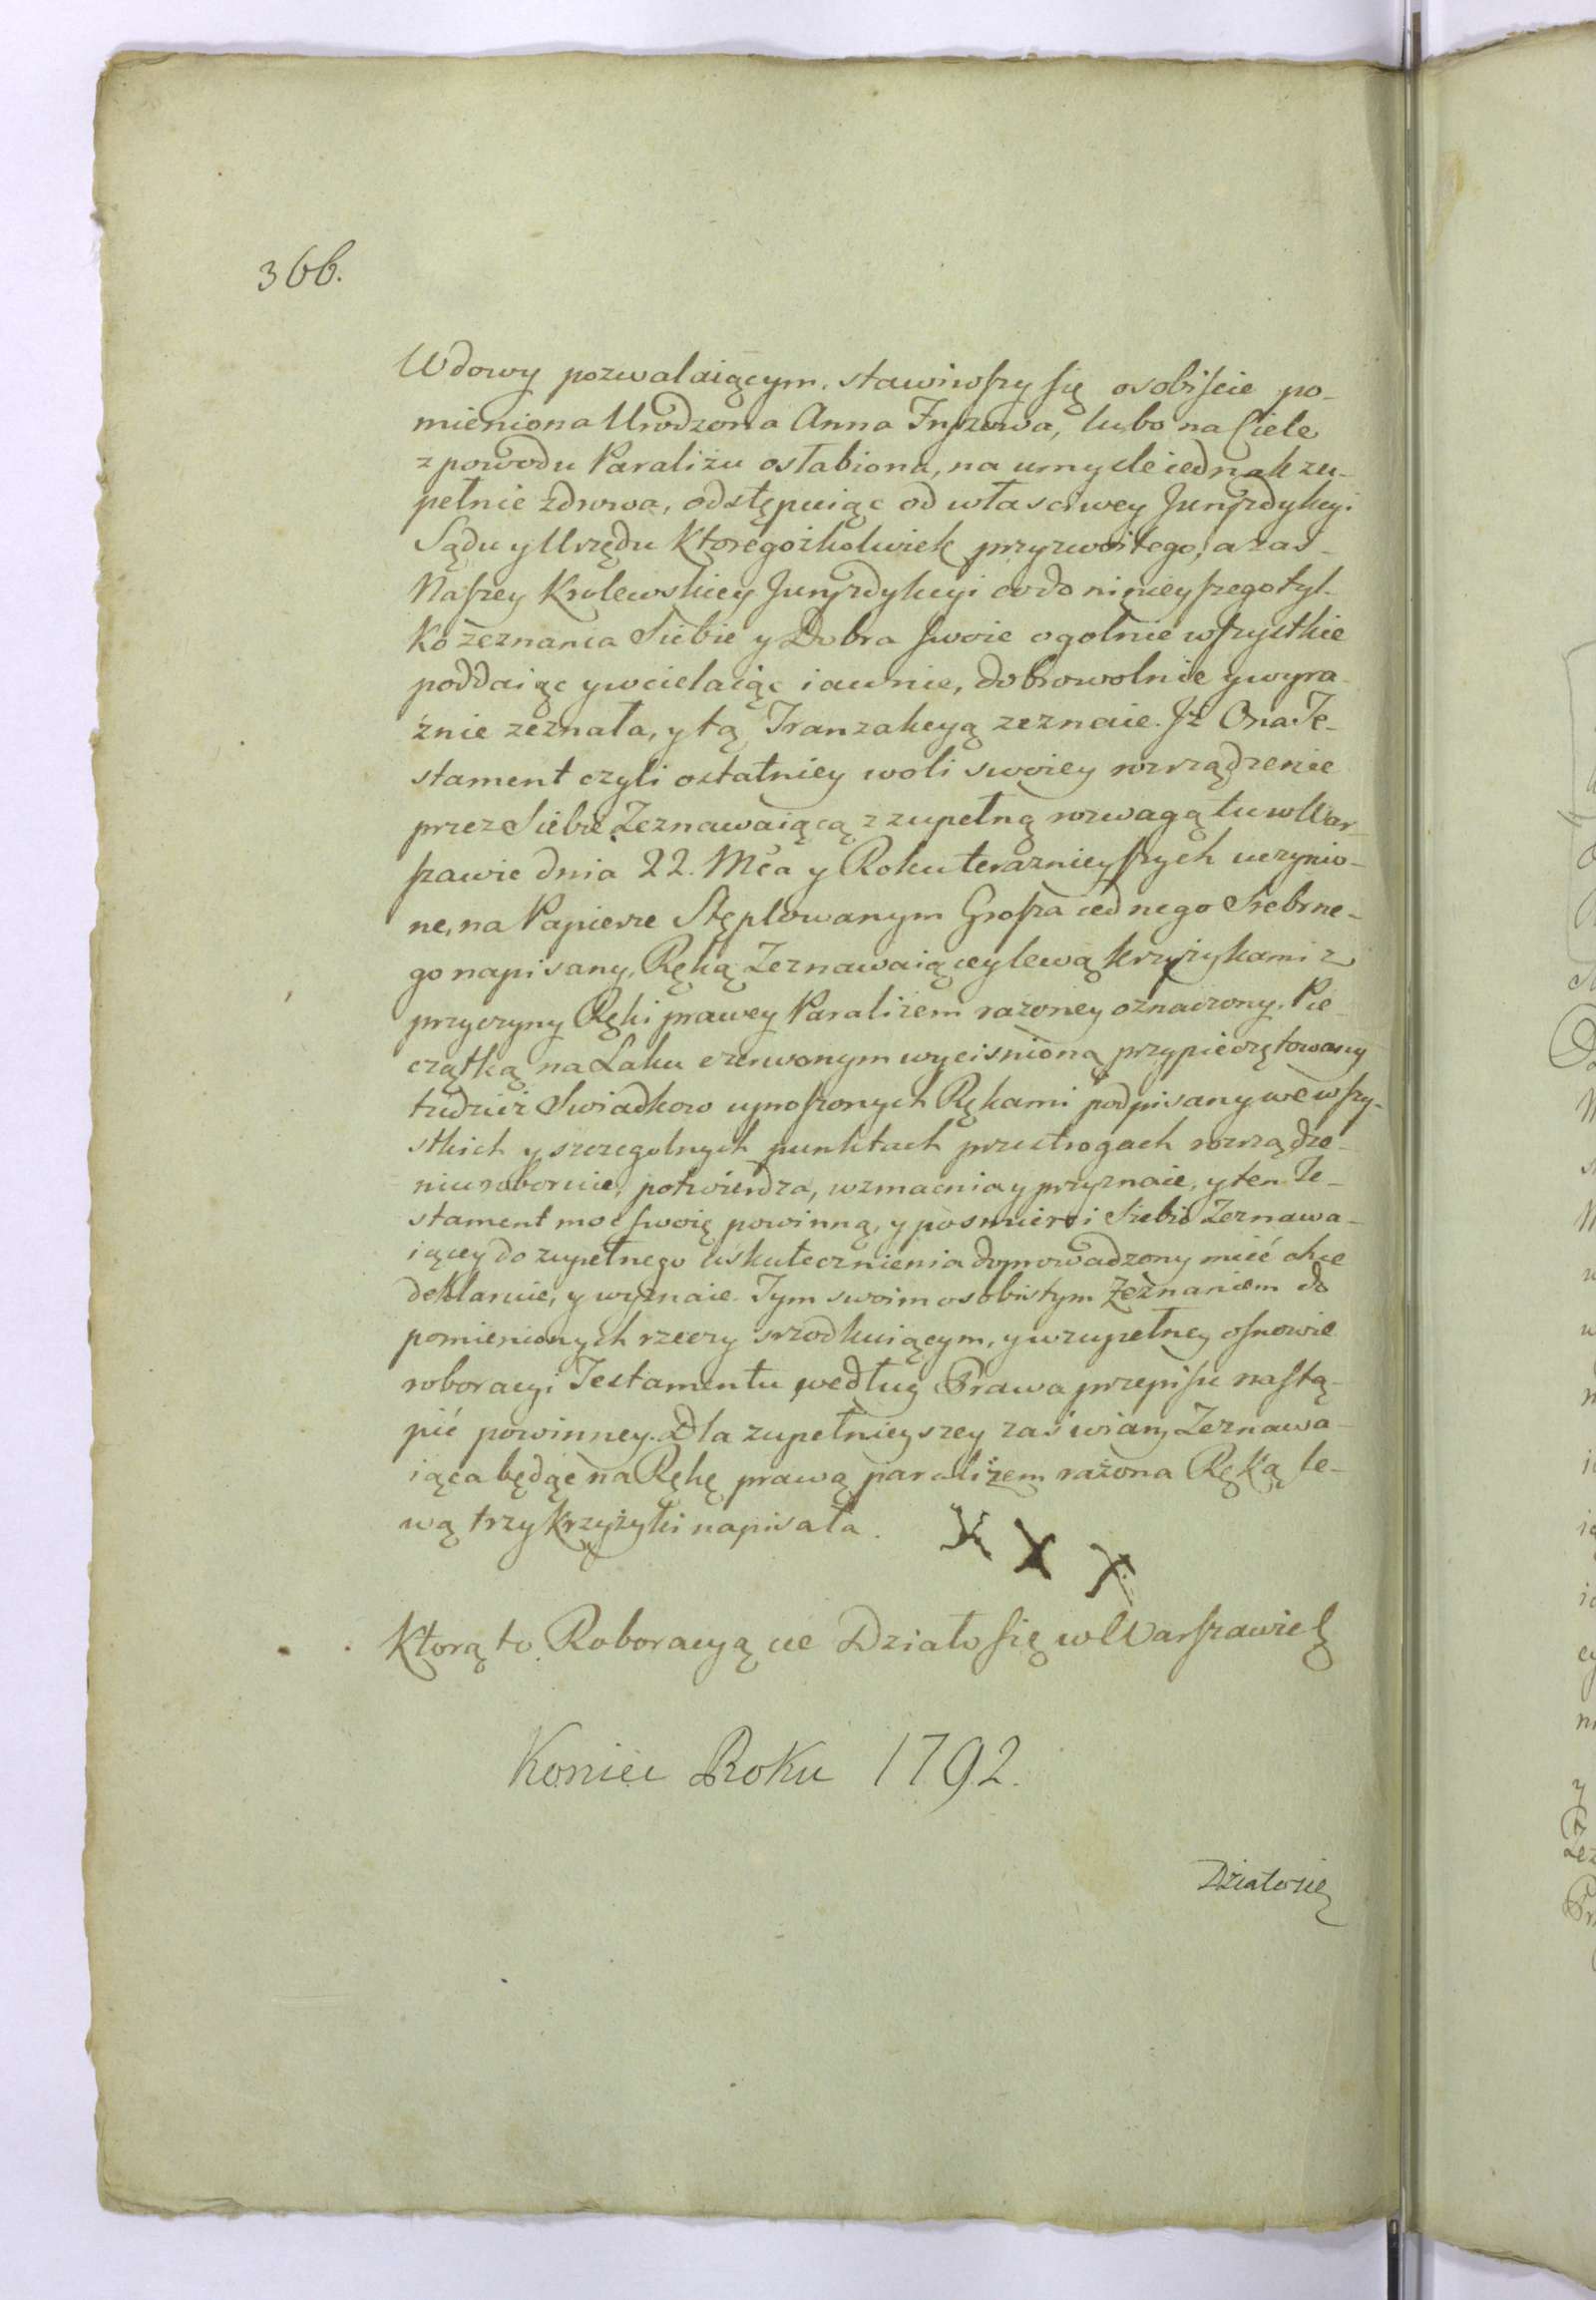 366.
Wdowy pozwalaiącym. stawiwszy się osobiście po-
mieniona Urodzona Anna lubo na Ciele
z powodu Paraliżu osłabiona, na umysle iednak zu-
pełnie zdrowa, odstępuiąc od własciwey Juryzdykcyi
Sądu y Urzędu Ktoregożkolwiek przyzwoitego, a zas
Naszey Krolewskiey Juryzdykcyi co do ninieyszego tyl-
ko zeznania Siebie y Dobra swoie ogolnie wszystkie
poddaiąc y wcielaiąc iawnie, dobrowolnie y wyra-
źnie zeznała, y tą Tranzakcyą zeznaie. Jż Ona Te-
stament czyli ostatniey woli swoiey rozrządzenie
przez Siebie Zeznawaiącą z zupełną rozwagą tu w War-
szawie dnia 22. Mca y Roku teraznieyszych uczynio-
ne, na Papierze Stęplowanym Grosza iednego Srebrne-
go napisany, Ręką Zeznawaiącey lewą krzyżykami z
przyczyny Ręki prawey Paraliżem rażoney oznaczony. Pie-
czątką na Laku czerwonym wyciśnioną przypieczętowany
tudzież Swiadkow uproszonych Rękami podpisany we wszy-
stkich y szczegolnych punktach przestrogach rozrządze-
niu roboruie, potwierdza, wzmacnia y przyznaie, y ten Te-
stament moc swoię powinną, y po smierci Siebie Zeznawa-
iącey do zupełnego uskutecznienia doprowadzony mieć chce
deklaruie, y wyznaie. Tym swoim osobistym Zeznaniem do
pomienionych rzeczy srzodkuiącym, y w zupełney osnowie
roboracyi Testamentu według Prawa przepisu nastą-
pić powinney. Dla zupełnieyszey zaś wiary Zeznawa-
iąca będąc na Rękę prawą paraliżem rażona Ręką le-
wą trzy Krzyżyki napisała. X X X
Ktorą to Roboracyą &c Działo się w Warszawie
Koniec Roku 1792.
Działo się